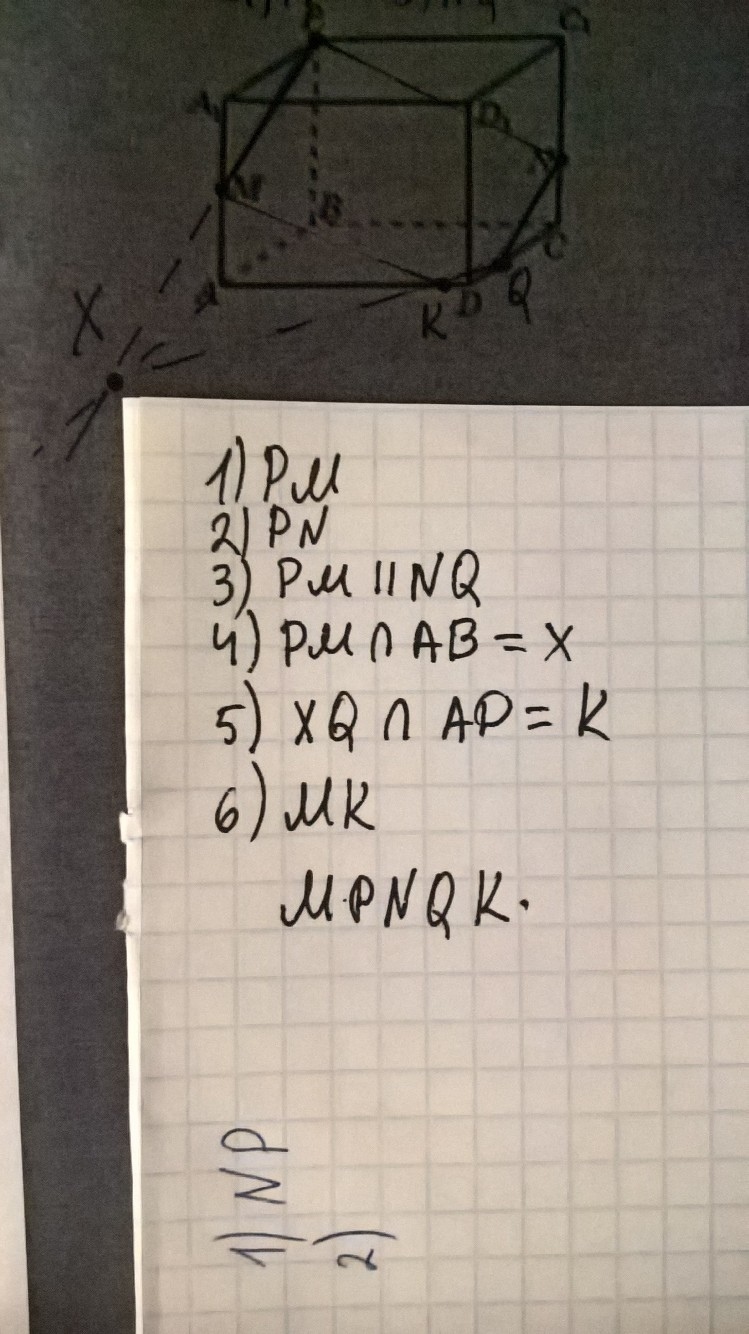 A₁
D₁
M
B
C
X
K D Q
1) PM
2) PN
3) PM || NQ
4) PM ∩ AB = X
5) XQ ∩ AD = K
6) MK
MPNQK.
1) NP
2)